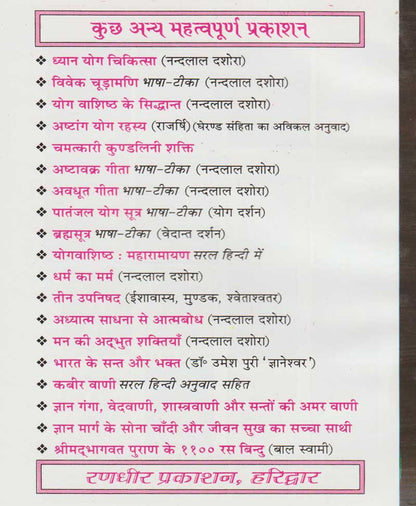 कुछ अन्य महत्वपूर्ण प्रकाशन
❖ ध्यान योग चिकित्सा (नन्दलाल दशोरा)
❖ विवेक चूड़ामणि भाषा-टीका (नन्दलाल दशोरा)
❖ योग वाशिष्ठ के सिद्धान्त (नन्दलाल दशोरा)
❖ अष्टांग योग रहस्य (राजर्षि) (घेरण्ड संहिता का अविकल अनुवाद)
❖ चमत्कारी कुण्डलिनी शक्ति
❖ अष्टावक्र गीता भाषा-टीका (नन्दलाल दशोरा)
❖ अवधूत गीता भाषा-टीका (नन्दलाल दशोरा)
❖ पातंजल योग सूत्र भाषा-टीका (योग दर्शन)
❖ ब्रह्मसूत्र भाषा-टीका (वेदान्त दर्शन)
❖ योगवाशिष्ठ : महारामायण सरल हिन्दी में
❖ धर्म का मर्म (नन्दलाल दशोरा)
❖ तीन उपनिषद (ईशावास्य, मुण्डक, श्वेताश्वतर)
❖ अध्यात्म साधना से आत्मबोध (नन्दलाल दशोरा)
❖ मन की अद्भुत शक्तियाँ (नन्दलाल दशोरा)
❖ भारत के सन्त और भक्त (डॉ॰ उमेश पुरी 'ज्ञानेश्वर')
❖ कबीर वाणी सरल हिन्दी अनुवाद सहित
❖ ज्ञान गंगा, वेदवाणी, शास्त्रवाणी और सन्तों की अमर वाणी
❖ ज्ञान मार्ग के सोना चाँदी और जीवन सुख का सच्चा साथी
❖ श्रीमद्भागवत पुराण के ११०० रस बिन्दु (बाल स्वामी)
रणधीर प्रकाशन, हरिद्वार